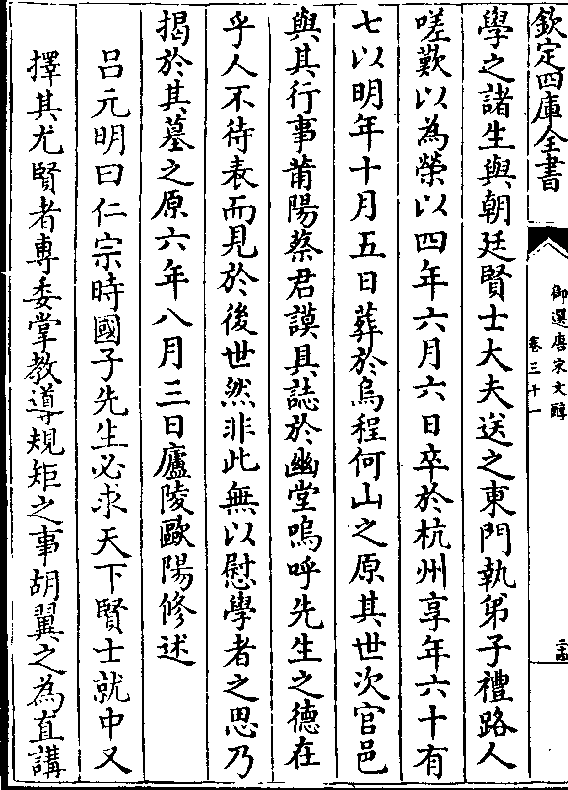 欽定四庫全書
御選唐宋文醇
卷三十一
學之諸生與朝廷賢士大夫送之東門執弟子禮路人
嗟歎以為榮以四年六月六日卒於杭州享年六十有
七以明年十月五日葬於烏程何山之原其世次官邑
與其行事莆陽蔡君謨具誌於幽堂嗚呼先生之德在
乎人不待表而見於後世然非此無以慰學者之思乃
揭於其墓之原六年八月三日廬陵歐陽修述
呂元明曰仁宗時國子先生必求天下賢士就中又
擇其尤賢者專委掌教導規矩之事胡翼之為直講